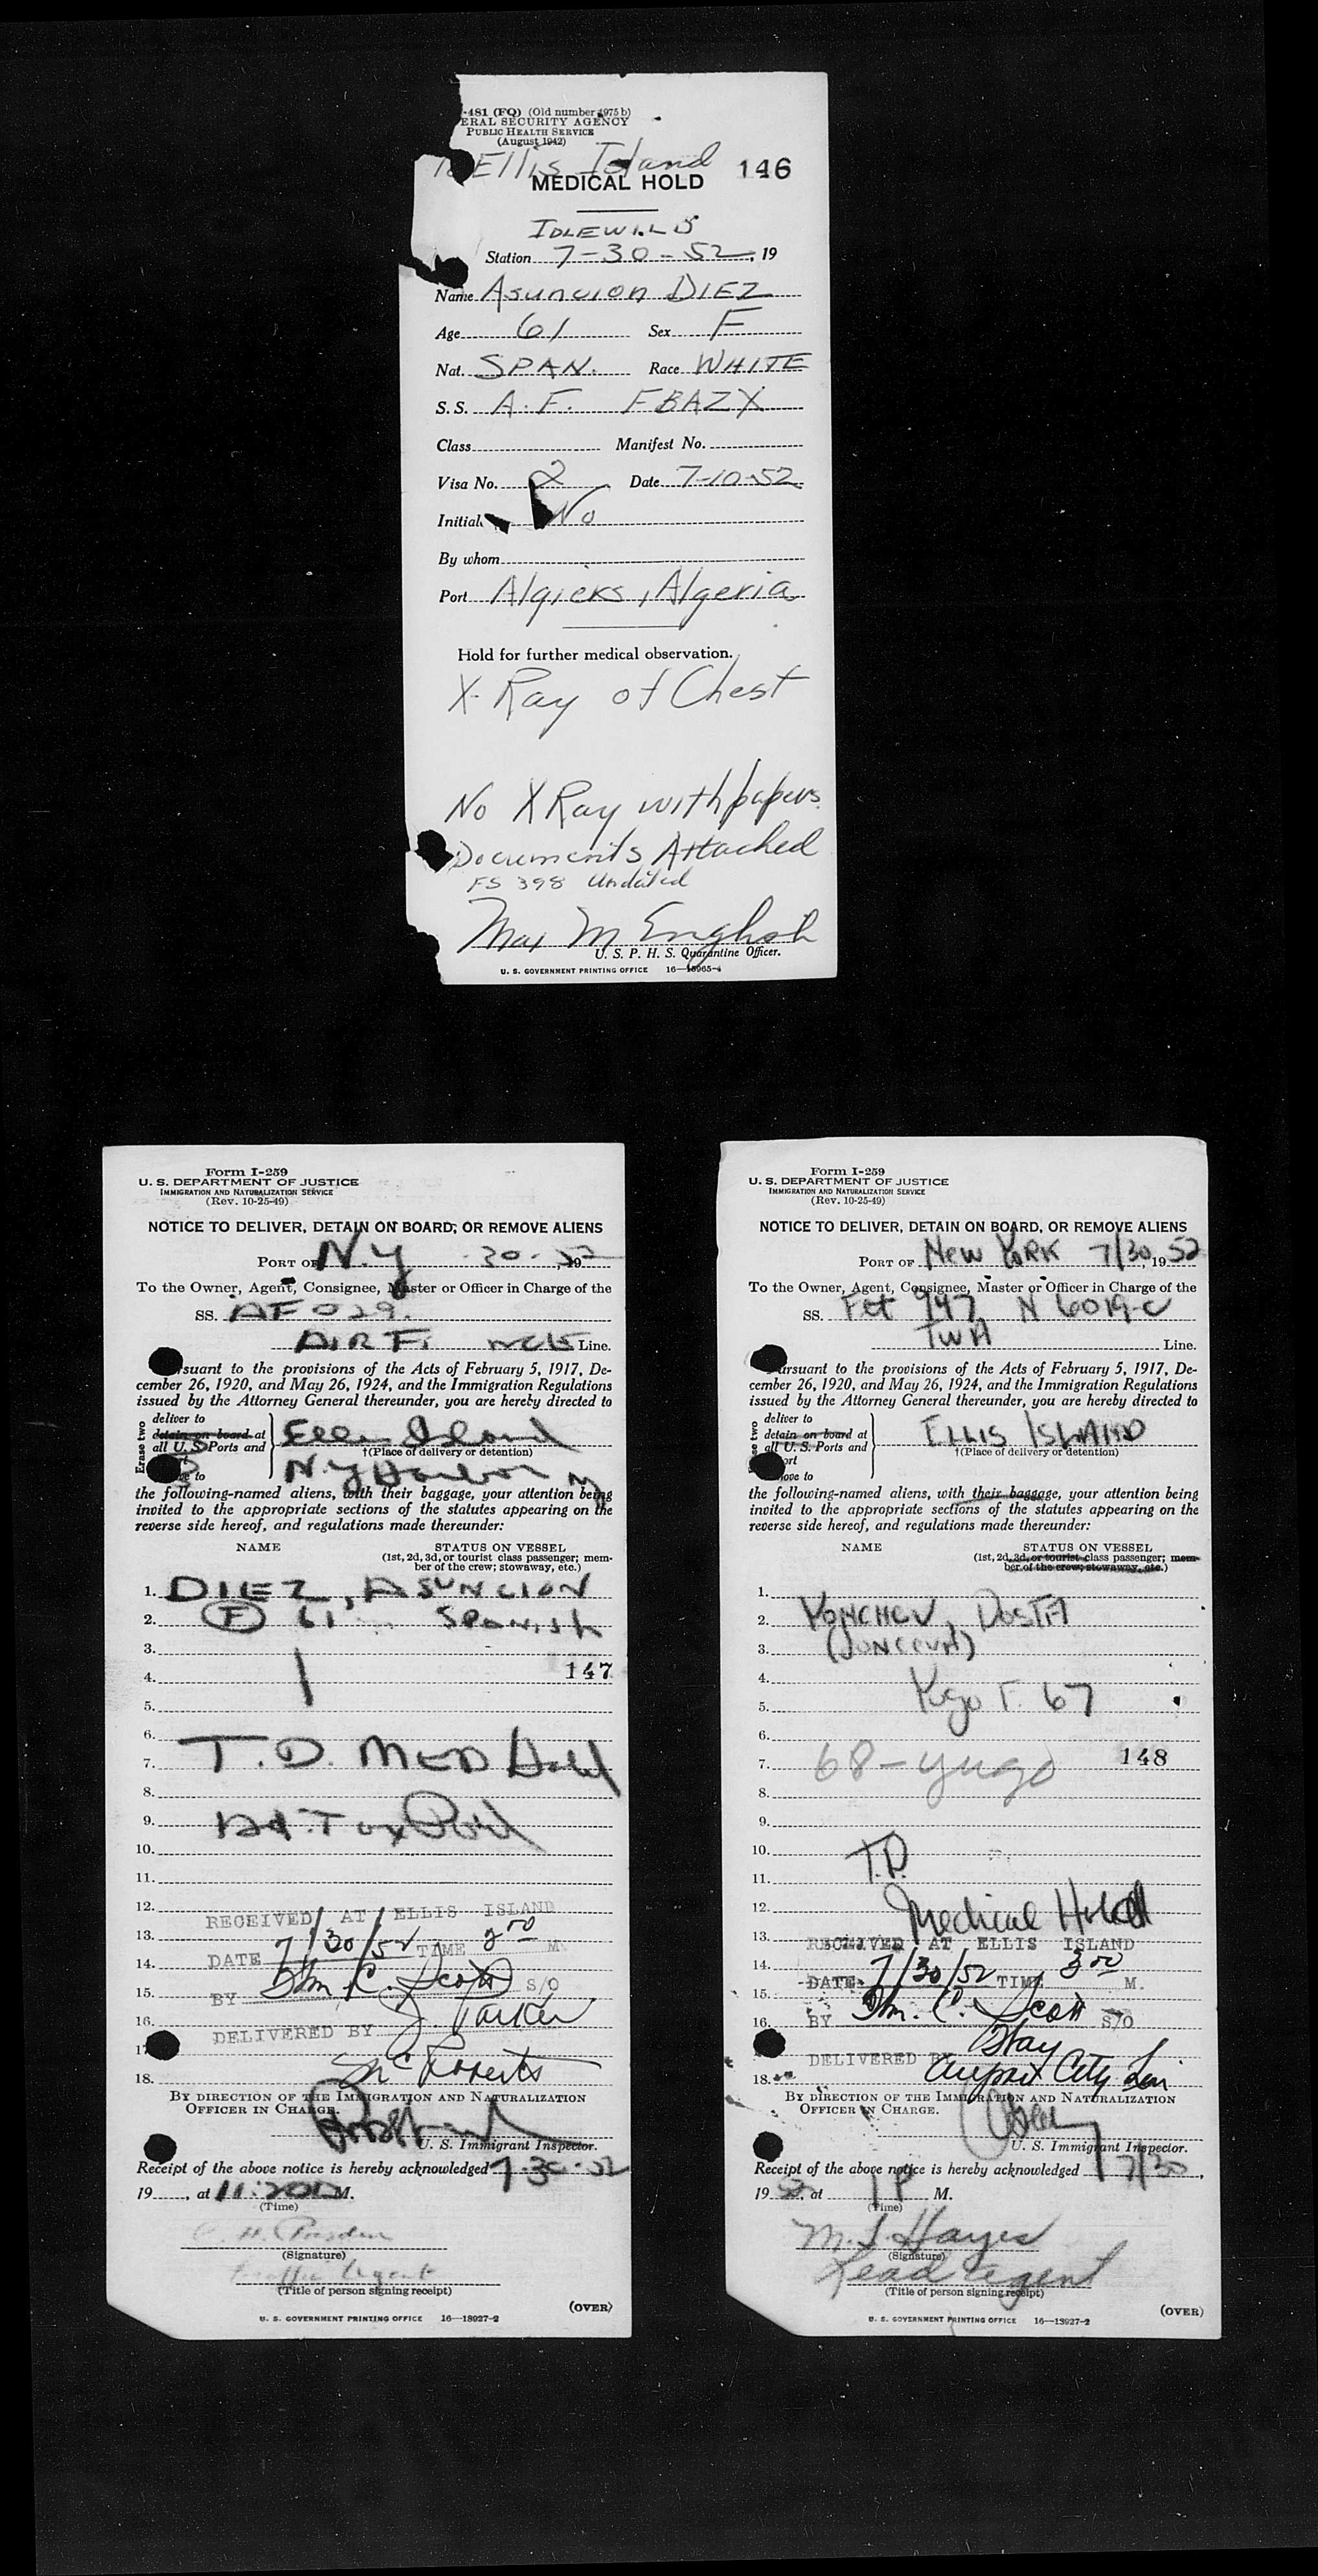 -481 (FQ) (Old number 4975 b)
ERAL SECURITY AGENCY
PUBLIC HEALTH SERVICE
(August 1942)
Ellis Island 146
MEDICAL HOLD
IDLEWILD
Station 7-30-52, 19
Name Asuncion DIEZ
Age 61 Sex F
Nat. SPAN. Race WHITE
S. S. A.F. FBAZX
Class Manifest No.
Visa No. 2 Date 7-10-52
Initial No
By whom
Port Algiers, Algeria
Hold for further medical observation.
X-Ray of Chest
No X Ray with papers.
Documents Attached
FS 398 Undated
Max M English
U. S. P. H. S. Quarantine Officer.
U. S. GOVERNMENT PRINTING OFFICE 16—15965-4
Form I-259
U. S. DEPARTMENT OF JUSTICE
IMMIGRATION AND NATURALIZATION SERVICE
(Rev. 10-25-49)
NOTICE TO DELIVER, DETAIN ON BOARD, OR REMOVE ALIENS
PORT OF N.Y 30-52
To the Owner, Agent, Consignee, Master or Officer in Charge of the
SS. AF 029.
AIR Line.
suant to the provisions of the Acts of February 5, 1917, De-
cember 26, 1920, and May 26, 1924, and the Immigration Regulations
issued by the Attorney General thereunder, you are hereby directed to
Erase two
deliver to
detain on board at Ellis Island
all U. S. Ports and †(Place of delivery or detention)
ve to N.Y Harbor N.Y
the following-named aliens, with their baggage, your attention being
invited to the appropriate sections of the statutes appearing on the
reverse side hereof, and regulations made thereunder:
NAME STATUS ON VESSEL
(1st, 2d, 3d, or tourist class passenger; mem-
ber of the crew; stowaway, etc.)
1. DIEZ, ASUNCION
2. F 61 SPANISH
3.
4. 1 147
5.
6.
7. T.D. MED Hold
8.
9. Hd. Tax Paid
10.
11.
12.
RECEIVED AT ELLIS ISLAND
13.
DATE 7/30/52 TIME 2 00 M.
14.
15. BY Wm. C. Scott S/O
16. DELIVERED BY J. Parker
17
18. McRoberts
BY DIRECTION OF THE IMMIGRATION AND NATURALIZATION
OFFICER IN CHARGE.
U. S. Immigrant Inspector.
Receipt of the above notice is hereby acknowledged 7-30-52
19 , at 11:20 M.
(Time)
(Signature)
Traffic Agent
(Title of person signing receipt)
(OVER)
U. S. GOVERNMENT PRINTING OFFICE 16—13927-2
Form I-259
U. S. DEPARTMENT OF JUSTICE
IMMIGRATION AND NATURALIZATION SERVICE
(Rev. 10-25-49)
NOTICE TO DELIVER, DETAIN ON BOARD, OR REMOVE ALIENS
PORT OF NEW YORK 7/30, 1952
To the Owner, Agent, Consignee, Master or Officer in Charge of the
SS. Flt 947 N 6019-C
TWA Line.
ursuant to the provisions of the Acts of February 5, 1917, De-
cember 26, 1920, and May 26, 1924, and the Immigration Regulations
issued by the Attorney General thereunder, you are hereby directed to
se two
deliver to
detain on board at ELLIS ISLAND
all U. S. Ports and †(Place of delivery or detention)
ort
ove to
the following-named aliens, with their baggage, your attention being
invited to the appropriate sections of the statutes appearing on the
reverse side hereof, and regulations made thereunder:
NAME STATUS ON VESSEL
(1st, 2d, 3d, or tourist class passenger; mem-
ber of the crew; stowaway, etc.)
1.
2. YONCHEV, DOSTA
3. (JONCEVA)
4.
5. Yugo F. 67
6.
7. 68-yugo 148
8.
9.
10.
11. T.D.
12. Medical Hold
13.
RECEIVED AT ELLIS ISLAND
14.
DATE 7/30/52 TIME 3 00 M.
15.
16. BY Wm. C. Scott S/O
DELIVERED BY
18. Airport City
BY DIRECTION OF THE IMMIGRATION AND NATURALIZATION
OFFICER IN CHARGE.
U. S. Immigrant Inspector.
Receipt of the above notice is hereby acknowledged 7/30,
1952, at 1 P M.
(Time)
M. J. Hayes
(Signature)
Lead Agent
(Title of person signing receipt)
(OVER)
U. S. GOVERNMENT PRINTING OFFICE 16—13927-2